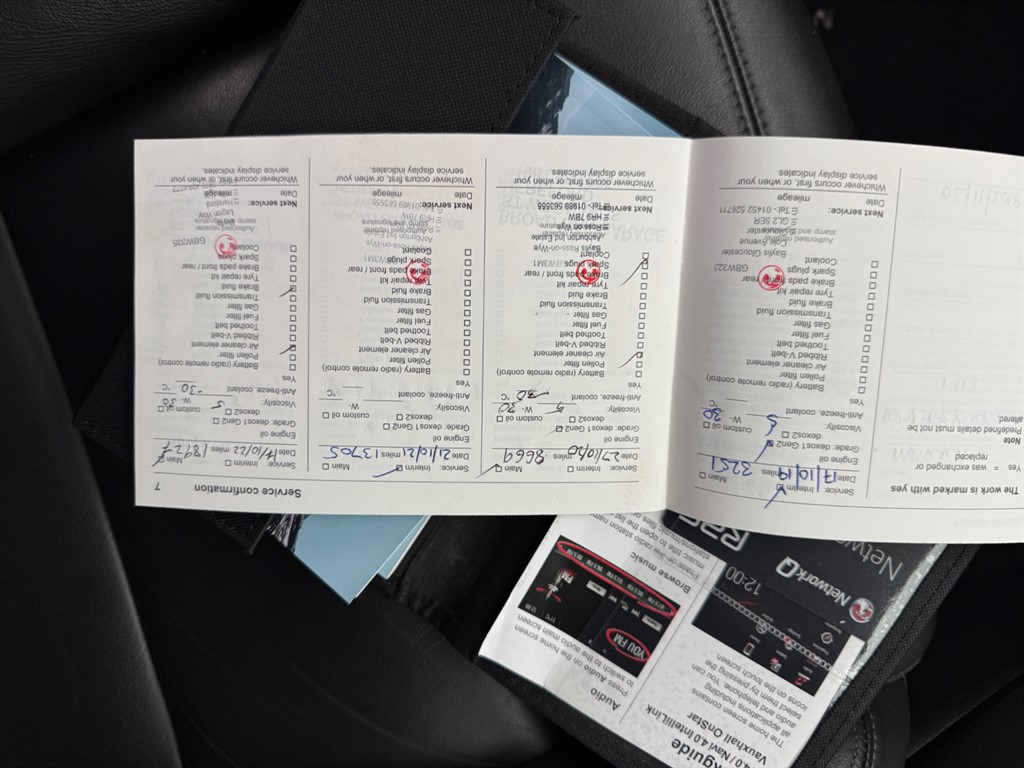 xguide
4.0 / Navi 4.0 IntelliLink
Vauxhall OnStar
The home screen contains
all applications including
audio and telephone. You can
select them by pressing the
icons on the touch screen.
12:00
NetworkQ
Audio
Press Audio on the home screen
to switch to the audio main screen.
YOU FM
FM
Browse music
The work is marked with yes
Yes = was exchanged or
replaced
Note
Predefined details must not be
altered
Service: Interim Main
Date 17/10/19 miles 3251
Engine oil
Grade: dexos1 Gen2
dexos2 custom oil
Viscosity: 5 W- 30
Anti-freeze, coolant °C
Yes
Battery (radio remote control)
Pollen filter
Air cleaner element
Ribbed V-belt
Toothed belt
Fuel filter
Gas filter
Transmission fluid
Brake fluid
Tyre repair kit
Brake pads front / rear
Spark plugs
Coolant
GBW322
Baylis Gloucester
Cole Avenue
Gloucester
GL2 5ER
Tel - 01452 526711
Authorised repairer
stamp and signature
Next service:
Date mileage
Whichever occurs first, or when your
service display indicates.
Service confirmation 7
Service: Interim Main
Date 27/10/20 miles 8669
Engine oil
Grade: dexos1 Gen2
dexos2 custom oil
Viscosity: 5 W- 30
Anti-freeze, coolant -30 °C
Yes
Battery (radio remote control)
Pollen filter
Air cleaner element
Ribbed V-belt
Toothed belt
Fuel filter
Gas filter
Transmission fluid
Brake fluid
Tyre repair kit
Brake pads front / rear
Spark plugs
Coolant
GBW3M1
Baylis Ross-on-Wye
Ashburton Estate
Ross on Wye
HR9 7BW
Tel - 01989 563555
Next service:
Date mileage
Whichever occurs first, or when your
service display indicates.
Service: Interim Main
Date 21/10/21 miles 13705
Engine oil
Grade: dexos1 Gen2
dexos2 custom oil
Viscosity: W-
Anti-freeze, coolant °C
Yes
Battery (radio remote control)
Pollen filter
Air cleaner element
Ribbed V-belt
Toothed belt
Fuel filter
Gas filter
Transmission fluid
Brake fluid
Tyre repair kit
Brake pads front / rear
Spark plugs
Coolant
GBW3M1
Ross-on-Wye
Ashburton Estate
HR9 7BW
Tel - 01989 563555
Authorised repairer
stamp and signature
Next service:
Date mileage
Whichever occurs first, or when your
service display indicates.
Service: Interim Main
Date 17/10/22 miles 18927
Engine oil
Grade: dexos1 Gen2
dexos2 custom oil
Viscosity: 5 W- 30
Anti-freeze, coolant -30 °C
Yes
Battery (radio remote control)
Pollen filter
Air cleaner element
Ribbed V-belt
Toothed belt
Fuel filter
Gas filter
Transmission fluid
Brake fluid
Tyre repair kit
Brake pads front / rear
Spark plugs
Coolant
GBW335
Authorised repairer
stamp and signature
Legion Way
Hereford
Next service:
Date mileage
Whichever occurs first, or when your
service display indicates.